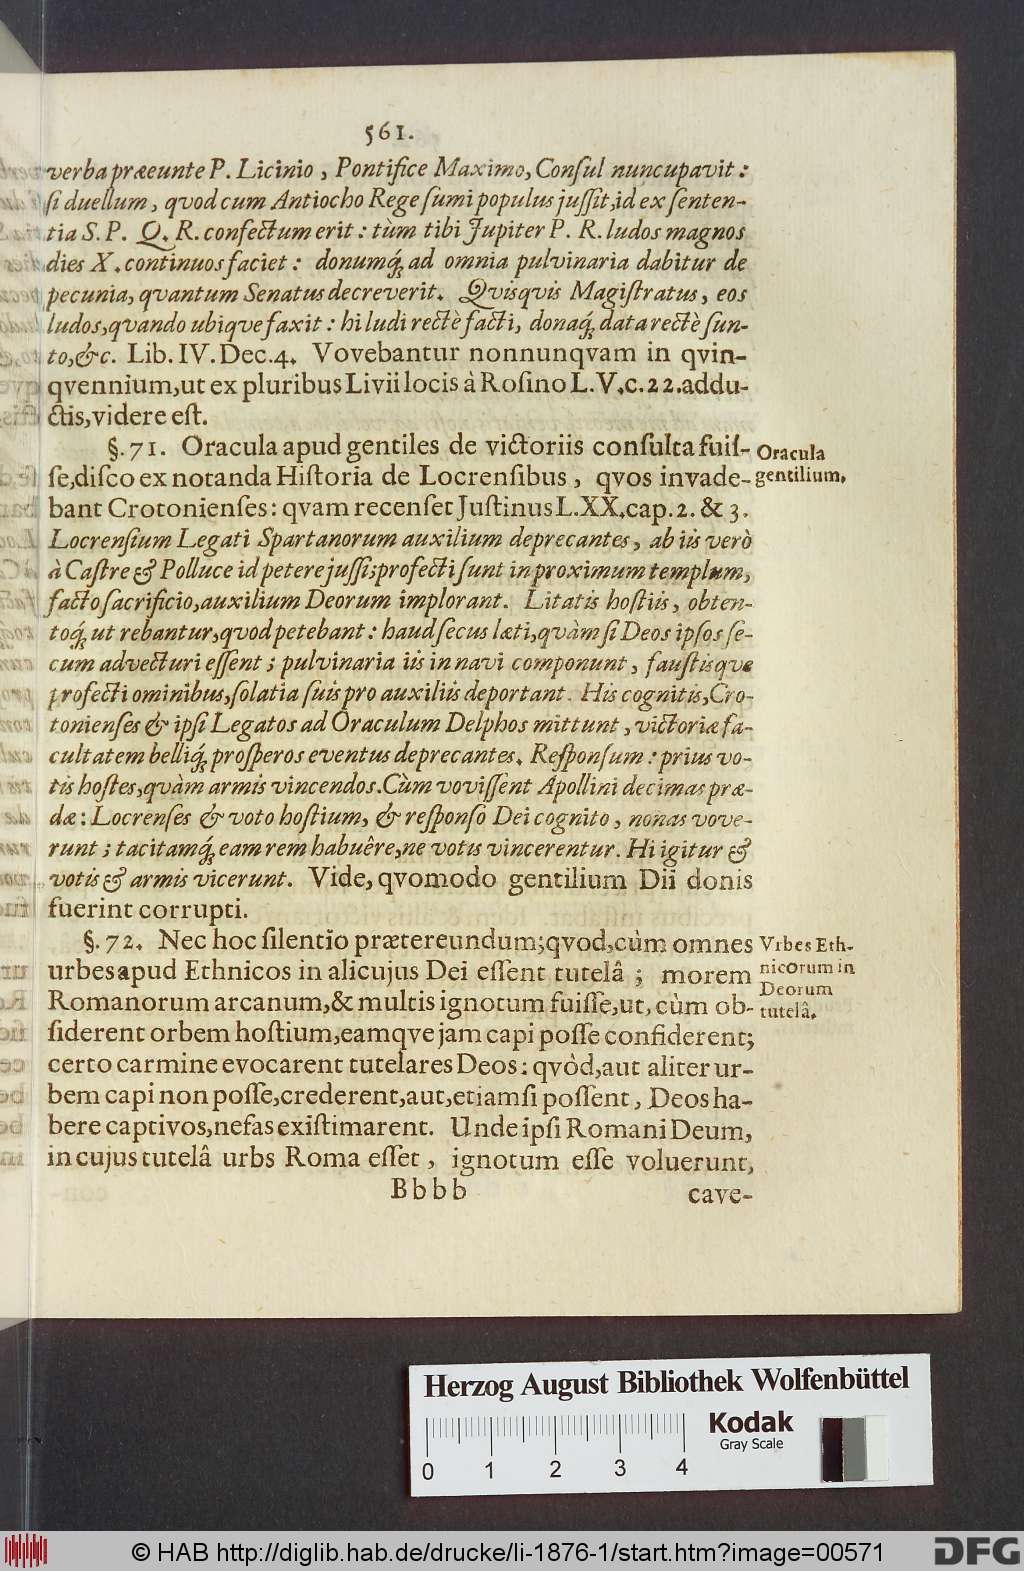 561.
verba præeunte P. Licinio, Pontifice Maximo, Conſul nuncupavit:
ſi duellum, quod cum Antiocho Rege ſumi populus juſſit, id ex ſenten-
tia S. P. Q. R. confectum erit: tùm tibi Jupiter P. R. ludos magnos
dies X. continuos faciet: donumq́; ad omnia pulvinaria dabitur de
pecunia, quantum Senatus decreverit. Quisquis Magiſtratus, eos
ludos, quando ubique faxit: hi ludi rectè facti, donaq́; data rectè ſun-
to, &c. Lib. IV. Dec. 4. Vovebantur nonnunqvam in qvin-
qvennium, ut ex pluribus Livii locis à Roſino L. V. c. 22. addu-
ctis, videre eſt.
§. 71. Oracula apud gentiles de victoriis conſulta fuiſ-
ſe, diſco ex notanda Hiſtoria de Locrenſibus, qvos invade-
bant Crotonienſes: qvam recenſet Juſtinus L. XX. cap. 2. & 3.
Oracula
gentilium.
Locrenſium Legati Spartanorum auxilium deprecantes, ab iis verò
à Caſtre & Polluce id petere juſſi; profecti ſunt in proximum templum,
facto ſacrificio, auxilium Deorum implorant. Litatis hoſtiis, obten-
toq́; ut rebantur, quod petebant: haud ſecus læti, quàm ſi Deos ipſos ſe-
cum advecturi eſſent; pulvinaria iis in navi componunt, fauſtisque
profecti ominibus, ſolatia ſuis pro auxiliis deportant. His cognitis, Cro-
tonienſes & ipſi Legatos ad Oraculum Delphos mittunt, victoriæ fa-
cultatem belliq́; proſperos eventus deprecantes. Reſponſum: prius vo-
tis hoſtes, quàm armis vincendos. Cùm voviſſent Apollini decimas præ-
dæ: Locrenſes & voto hoſtium, & reſponſo Dei cognito, nonas vove-
runt; tacitamq́; eam rem habuêre, ne votis vincerentur. Hi igitur &
votis & armis vicerunt. Vide, qvomodo gentilium Dii donis
fuerint corrupti.
§. 72. Nec hoc ſilentio prætereundum; qvod, cùm omnes
urbes apud Ethnicos in alicujus Dei eſſent tutelâ; morem
Romanorum arcanum, & multis ignotum fuiſſe, ut, cùm ob-
ſiderent orbem hoſtium, eamqve jam capi poſſe confiderent;
certo carmine evocarent tutelares Deos: qvòd, aut aliter ur-
bem capi non poſſe, crederent, aut, etiamſi poſſent, Deos ha-
bere captivos, nefas exiſtimarent. Unde ipſi Romani Deum,
in cujus tutelâ urbs Roma eſſet, ignotum eſſe voluerunt,
Vrbes Eth-
nicorum in
Deorum
tutelâ.
Bbbb
cave-
Herzog August Bibliothek Wolfenbüttel
Kodak
Gray Scale
0 1 2 3 4
© HAB http://diglib.hab.de/drucke/li-1876-1/start.htm?image=00571
DFG